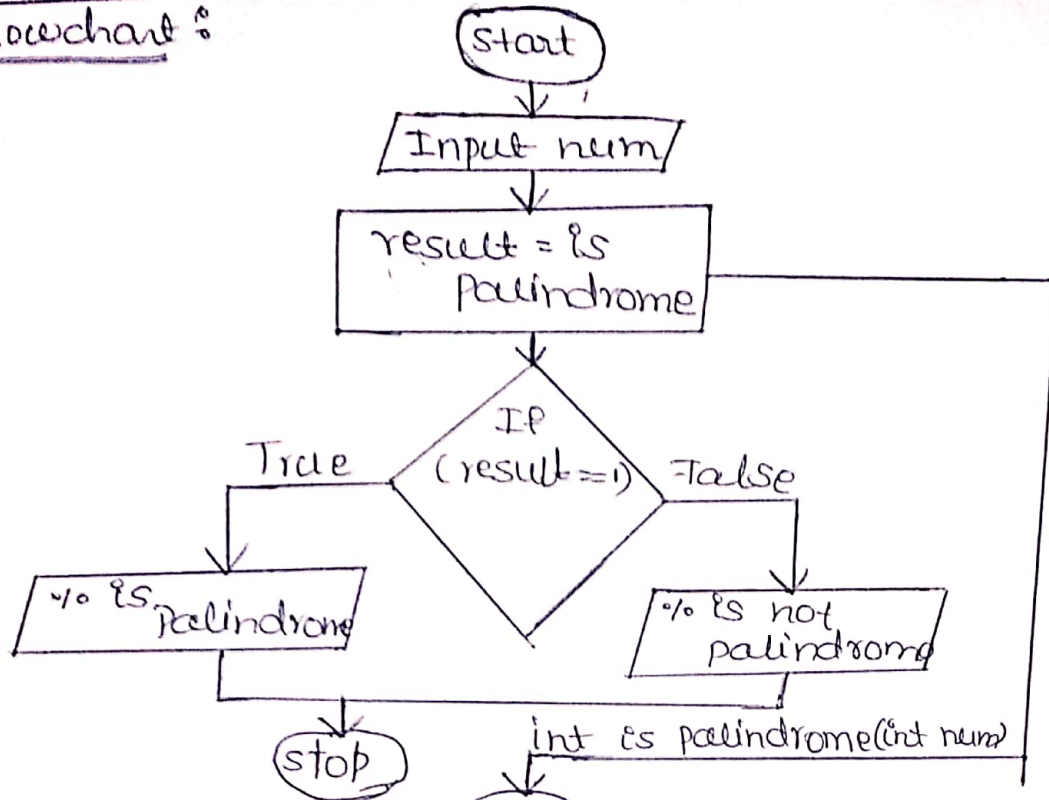 lowchart :
start
Input num
result = is
palindrome
If
(result==1)
True
False
% is
palindrome
% is not
palindrome
stop
int is palindrome(int num)